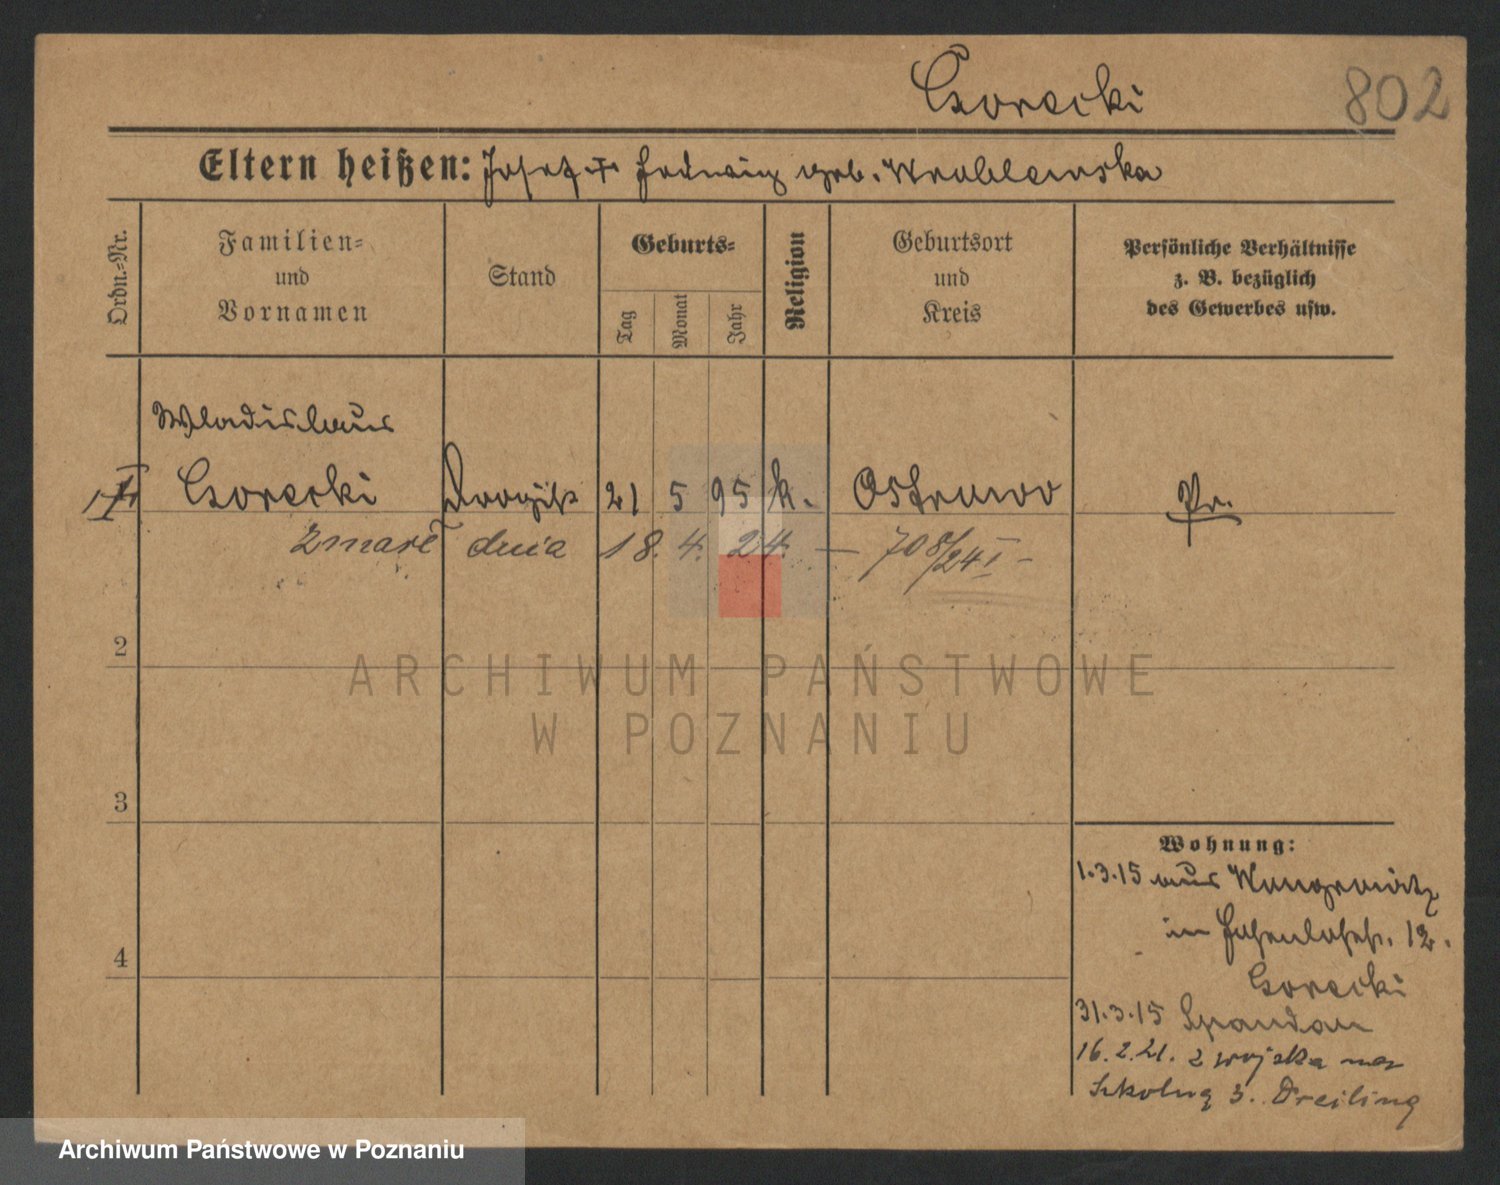 Gorecki 802
Eltern heißen: Josef + Hedwig geb. Wroblewska
Ordn.=Nr.
Familien=
und
Vornamen
Stand
Geburts=
Tag
Monat
Jahr
Religion
Geburtsort
und
Kreis
Persönliche Verhältnisse
z. B. bezüglich
des Gewerbes usw.
Wladislaus
Gorecki 21 5 95 k. Ostrowo Pr.
zmarł dnia 18. 4. 24. — 708/24 I -
2
3
4
Wohnung:
1.3.15 aus Wongrowitz
in Hohenlohestr. 12.
Gorecki
31.3.15 Spandau
16.2.21. z wojska na
Szkolną 3. Dreiling
ARCHIWUM PAŃSTWOWE
W POZNANIU
Archiwum Państwowe w Poznaniu